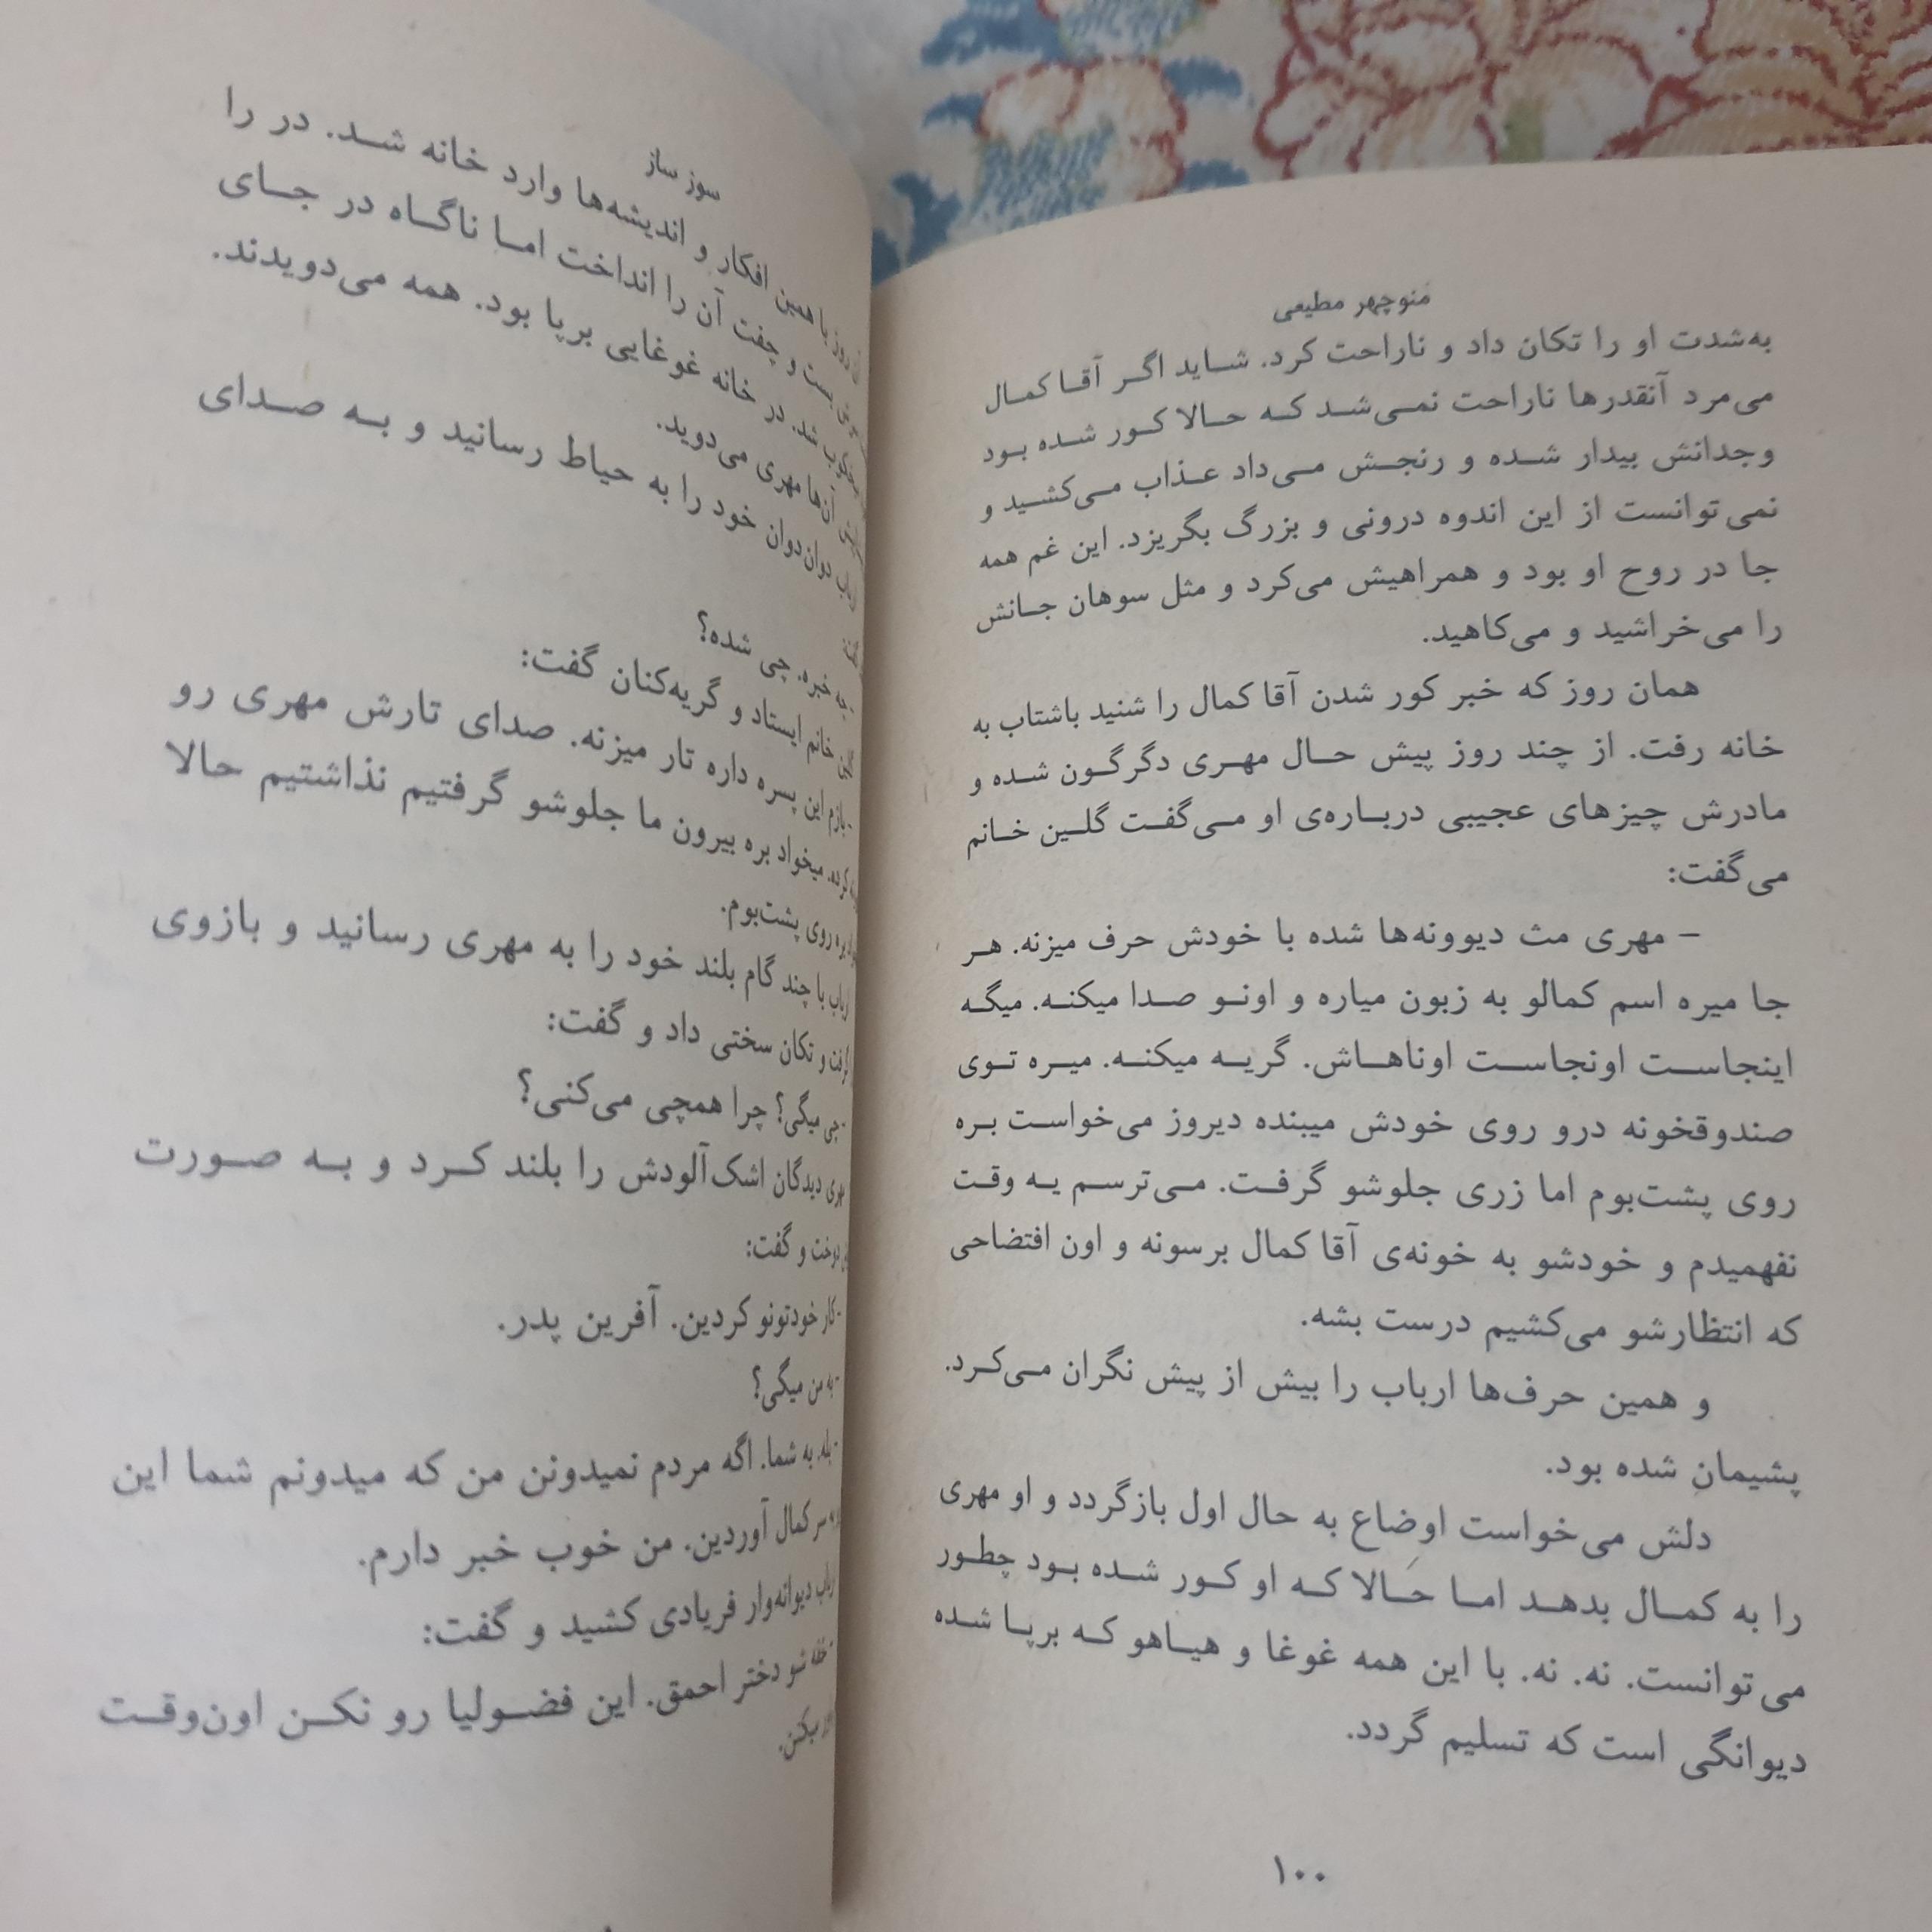 منوچهر مطیعی
به‌شدت او را تکان داد و ناراحت کرد. شاید اگر آقا کمال
می‌مرد آنقدرها ناراحت نمی‌شد که حالا کور شده بود
وجدانش بیدار شده و رنجش می‌داد عذاب می‌کشید و
نمی‌توانست از این اندوه درونی و بزرگ بگریزد. این غم همه
جا در روح او بود و همراهیش می‌کرد و مثل سوهان جانش
را می‌خراشید و می‌کاهید.
همان روز که خبر کور شدن آقا کمال را شنید باشتاب به
خانه رفت. از چند روز پیش حال مهری دگرگون شده و
مادرش چیزهای عجیبی درباره‌ی او می‌گفت گلین خانم
می‌گفت:
– مهری مث دیوونه‌ها شده با خودش حرف میزنه. هر
جا میره اسم کمالو به زبون میاره و اونو صدا میکنه. میگه
اینجاست اونجاست اوناهاش. گریه میکنه. میره توی
صندوقخونه درو روی خودش میبنده دیروز می‌خواست بره
روی پشت‌بوم اما زری جلوشو گرفت. می‌ترسم یه وقت
نفهمیدم و خودشو به خونه‌ی آقا کمال برسونه و اون افتضاحی
که انتظارشو می‌کشیم درست بشه.
و همین حرف‌ها ارباب را بیش از پیش نگران می‌کرد.
پشیمان شده بود.
دلش می‌خواست اوضاع به حال اول بازگردد و او مهری
را به کمال بدهد اما حالا که او کور شده بود چطور
می‌توانست. نه. نه. با این همه غوغا و هیاهو که برپا شده
دیوانگی است که تسلیم گردد.
۱۰۰
سوز ساز
روز با همین افکار و اندیشه‌ها وارد خانه شد. در را
بست و چفت آن را انداخت اما ناگاه در جای
شد. در خانه غوغایی برپا بود. همه می‌دویدند.
آن‌ها مهری می‌دوید.
دوان‌دوان خود را به حیاط رسانید و به صدای
- چه خبره. چی شده؟
خانم ایستاد و گریه‌کنان گفت:
- بازم این پسره داره تار میزنه. صدای تارش مهری رو
کرده. میخواد بره بیرون ما جلوشو گرفتیم نذاشتیم حالا
بره روی پشت‌بوم.
ارباب با چند گام بلند خود را به مهری رسانید و بازوی
گرفت و تکان سختی داد و گفت:
- چی میگی؟ چرا همچی می‌کنی؟
مهری دیدگان اشک‌آلودش را بلند کرد و به صورت
دوخت و گفت:
- کار خودتونو کردین. آفرین پدر.
- به من میگی؟
- بله. به شما. اگه مردم نمیدونن من که میدونم شما این
سر کمال آوردین. من خوب خبر دارم.
ارباب دیوانه‌وار فریادی کشید و گفت:
- خفه شو دختر احمق. این فضولیا رو نکن اون‌وقت